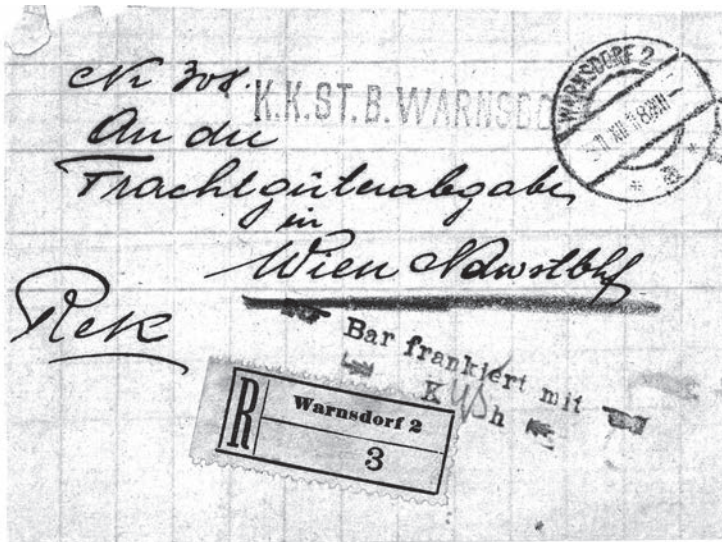 Nr 308.
K.K.ST.B. WARNSDO
WARNSDORF 2
An die
Frachtgüterabgabe
in
Wien Ndwstbhf
Rek
Bar frankiert mit
K 45 h
R
Warnsdorf 2
3